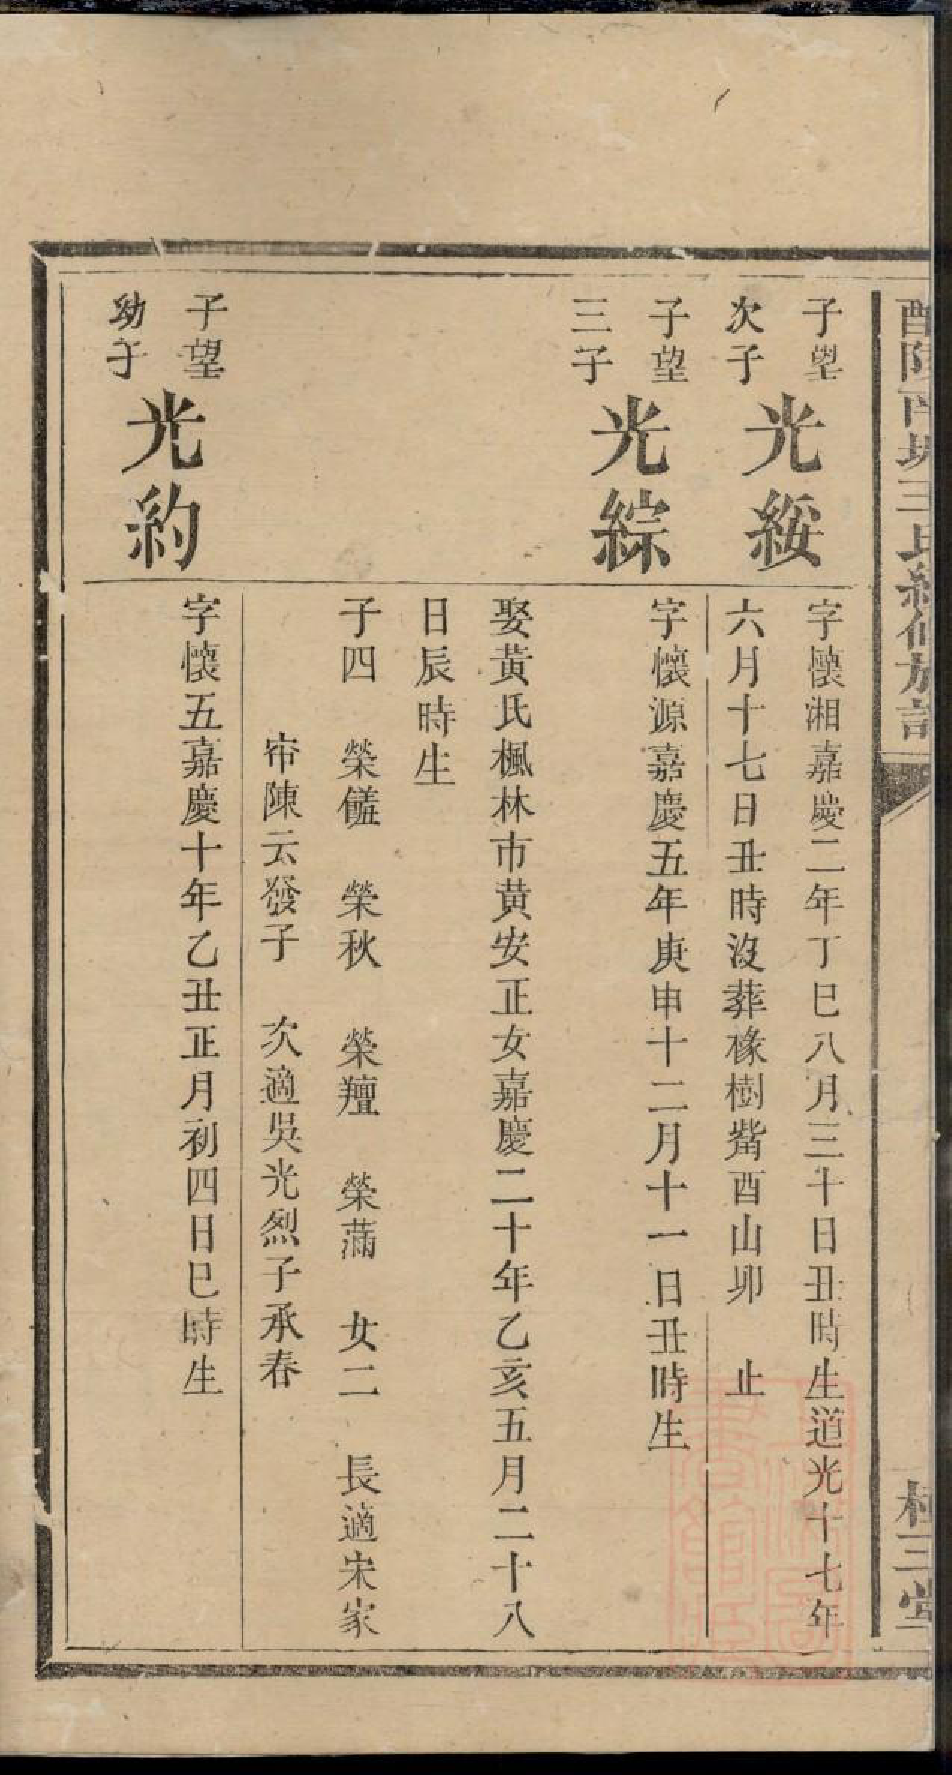 醴陵
王氏續修族譜
三堂
子望
次子
光綏
字懷湘嘉慶二年丁巳八月三十日丑時生道光十七年
六月十七日丑時沒葬椽樹嵴酉山卯 止
子望
三子
光綜
字懷源嘉慶五年庚申十二月十一日丑時生
娶黃氏楓林市黃安正女嘉慶二十年乙亥五月二十八
日辰時生
子四 榮 榮秋 榮 榮滿 女二 長適宋家
陳云發子 次適吳光烈子承春
子望
幼子
光約
字懷五嘉慶十年乙丑正月初四日巳時生